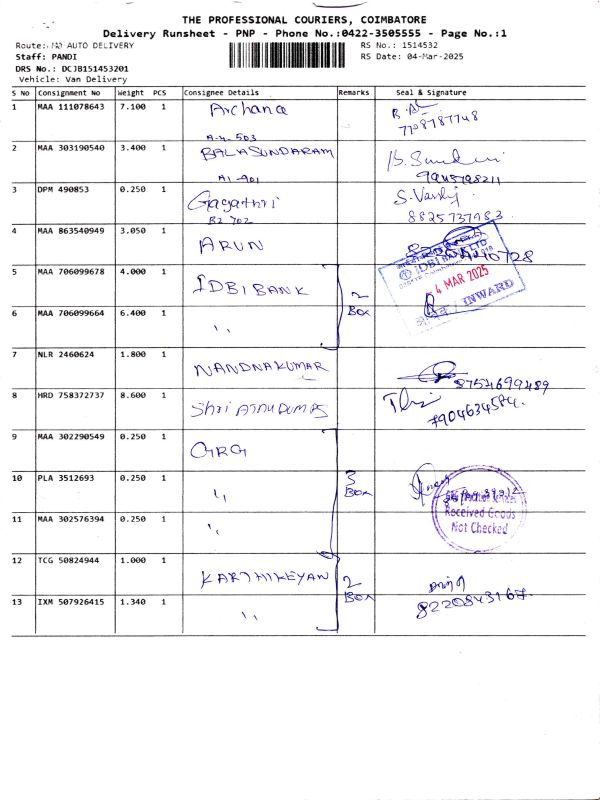 THE PROFESSIONAL COURIERS, COIMBATORE
Delivery Runsheet - PNP - Phone No.:0422-3505555 - Page No.:1
Route: AUTO DELIVERY
RS No.: 1514532
Staff: PANDI
RS Date: 04-Mar-2025
DRS No.: DCJB151453201
Vehicle: Van Delivery
S No Consignment No Weight PCS Consignee Details Remarks Seal & Signature
1 MAA 111078643 7.100 1 Archana
7708787748
2 MAA 303190540 3.400 1 BALASUNDARAM
A1-901
3 DPM 490853 0.250 1 Gayathri
B2 702
8825737983
4 MAA 863540949 3.050 1 ARUN
5 MAA 706099678 4.000 1 IDBI BANK
2 Box
4 MAR 2025
INWARD
6 MAA 706099664 6.400 1 ,,
7 NLR 2460624 1.800 1 NANDNAKUMAR
8754699489
8 HRD 758372737 8.600 1 Shri
7904634584
9 MAA 302290549 0.250 1 GRG
10 PLA 3512693 0.250 1 ,,
3 Box
Received Goods
Not Checked
11 MAA 302576394 0.250 1 ,,
12 TCG 50824944 1.000 1 KARTHIKEYAN
2 Box
13 IXM 507926415 1.340 1 ,,
8220843167